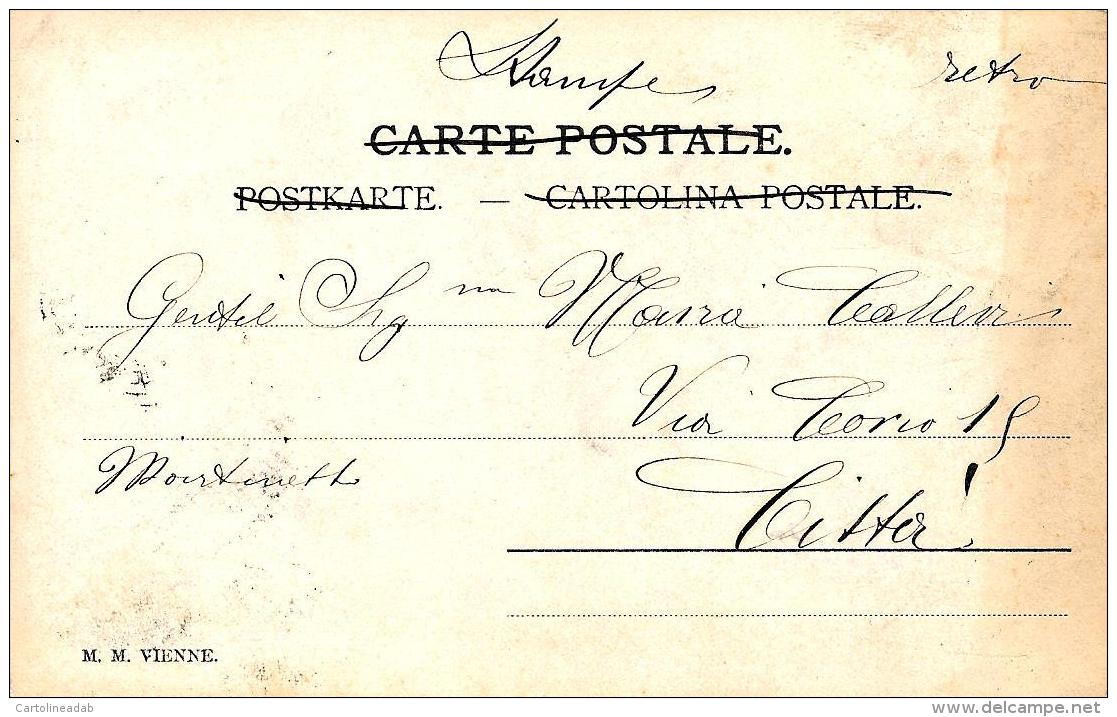 Stampe retro
CARTE POSTALE.
POSTKARTE. — CARTOLINA POSTALE.
Gentil Signa Maria Calleri
Via Corio 15
Martinetto
Città
M. M. VIENNE.
Cartolineadab
delcampe.net